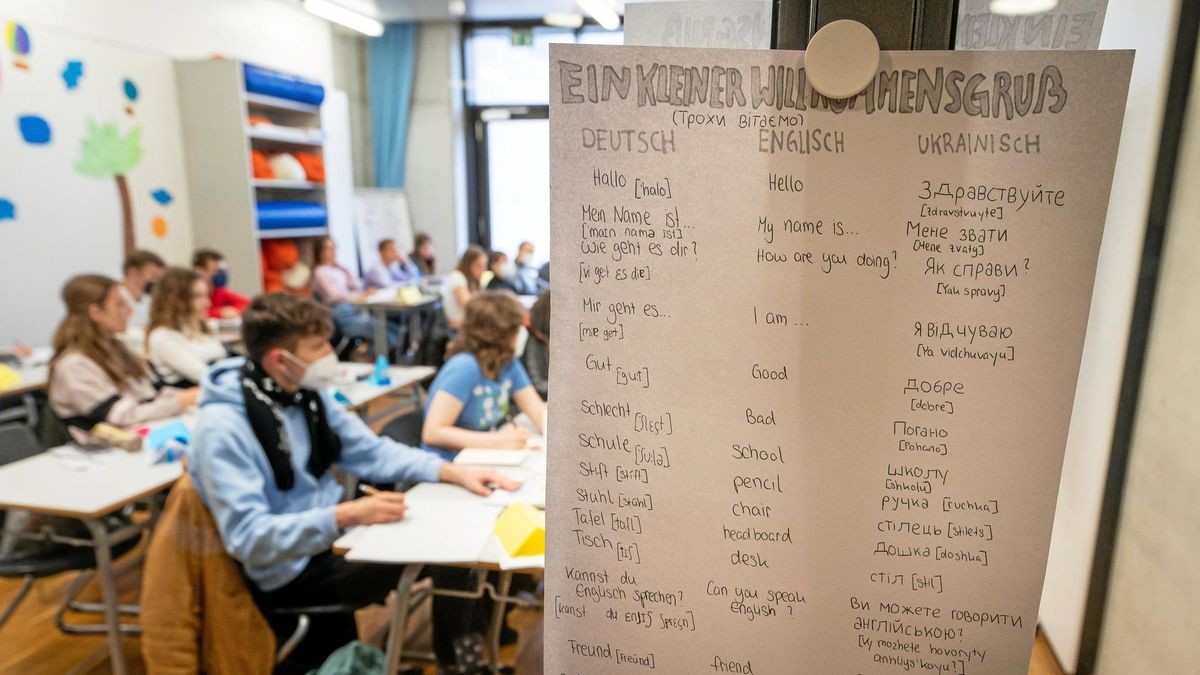 EIN KLEINER WILLKOMMENSGRUß
(Трохи вітаємо)
DEUTSCH ENGLISCH UKRAINISCH
Hallo [halo] Hello Здравствуйте
[zdravstvuyte]
Mein Name ist... My name is... Мене звати
[main namə ist] [Mene zvaty]
Wie geht es dir? How are you doing? Як справи?
[vi get ɛs diɐ] [Yak spravy]
Mir geht es... I am ... я відчуваю
[miɐ get] [Ya vidchuvayu]
Gut [gut] Good Добре
[dobre]
Schlecht [ʃlɛçt] Bad Погано
[Pohano]
Schule [ʃulə] school школу
[shkolu]
Stift [stift] pencil ручка [ruchka]
Stuhl [stuhl] chair стілець [stilets]
Tafel [tafl] headboard дошка [doshka]
Tisch [tiʃ] desk стіл [stil]
Kannst du Can you speak Ви можете говорити
Englisch sprechen? english ? англійською?
[kanst du ɛnliʃ ʃpreçn] [Vy mozhete hovoryty
anhliys'koyu?]
Freund [freund] friend